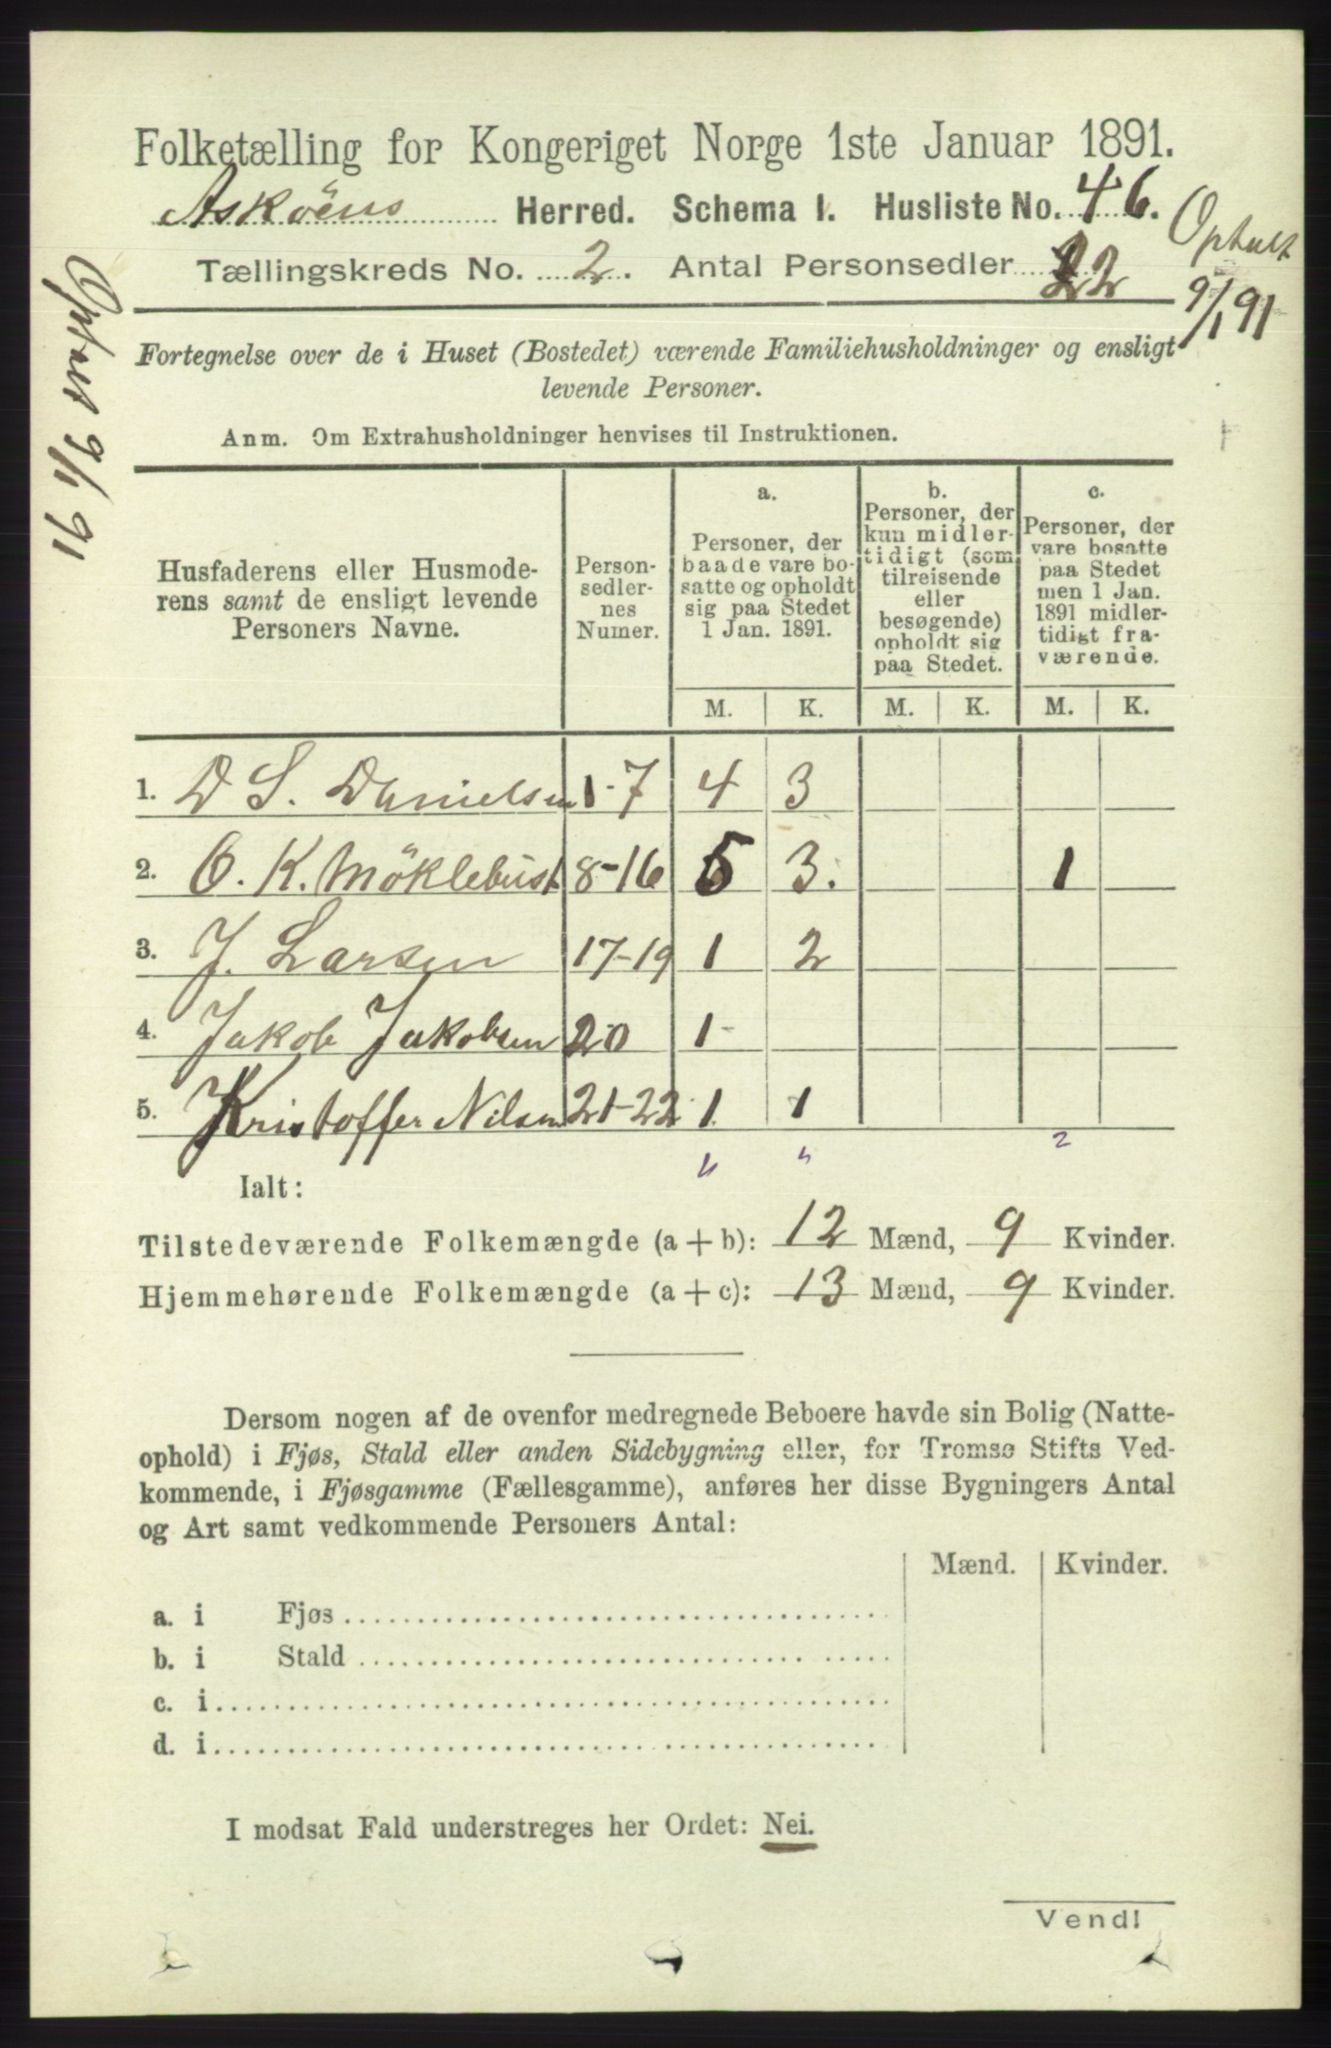 Folketælling for Kongeriget Norge 1ste Januar 1891.
Askøens Herred. Schema I. Husliste No. 46.
Tællingskreds No. 2. Antal Personsedler 22
9/1 91
9/1 91
Fortegnelse over de i Huset (Bostedet) værende Familiehusholdninger og ensligt
levende Personer.
Anm. Om Extrahusholdninger henvises til Instruktionen.
Husfaderens eller Husmode-
rens samt de ensligt levende
Personers Navne.
Person-
sedler-
nes
Numer.
a.
Personer, der
baade vare bo-
satte og opholdt
sig paa Stedet
1 Jan. 1891.
b.
Personer, der
kun midler-
tidigt (som
tilreisende
eller
besøgende)
opholdt sig
paa Stedet.
c.
Personer, der
vare bosatte
paa Stedet
men 1 Jan.
1891 midler-
tidigt fra-
værende.
M. K. M. K. M. K.
1. D S. Danielsen 1-7 4 3
2. O. K. Möklebust 8-16 5 3. 1
3. J. Larsen 17-19 1 2
4. Jakob Jakobsen 20 1
5. Kristoffer Nilsen 21-22 1 1
2
Ialt:
Tilstedeværende Folkemængde (a + b): 12 Mænd, 9 Kvinder.
Hjemmehørende Folkemængde (a + c): 13 Mænd, 9 Kvinder.
Dersom nogen af de ovenfor medregnede Beboere havde sin Bolig (Natte-
ophold) i Fjøs, Stald eller anden Sidebygning eller, for Tromsø Stifts Ved-
kommende, i Fjøsgamme (Fællesgamme), anføres her disse Bygningers Antal
og Art samt vedkommende Personers Antal:
Mænd. Kvinder.
a. i Fjøs
b. i Stald
c. i
d. i
I modsat Fald understreges her Ordet: Nei.
Vend!